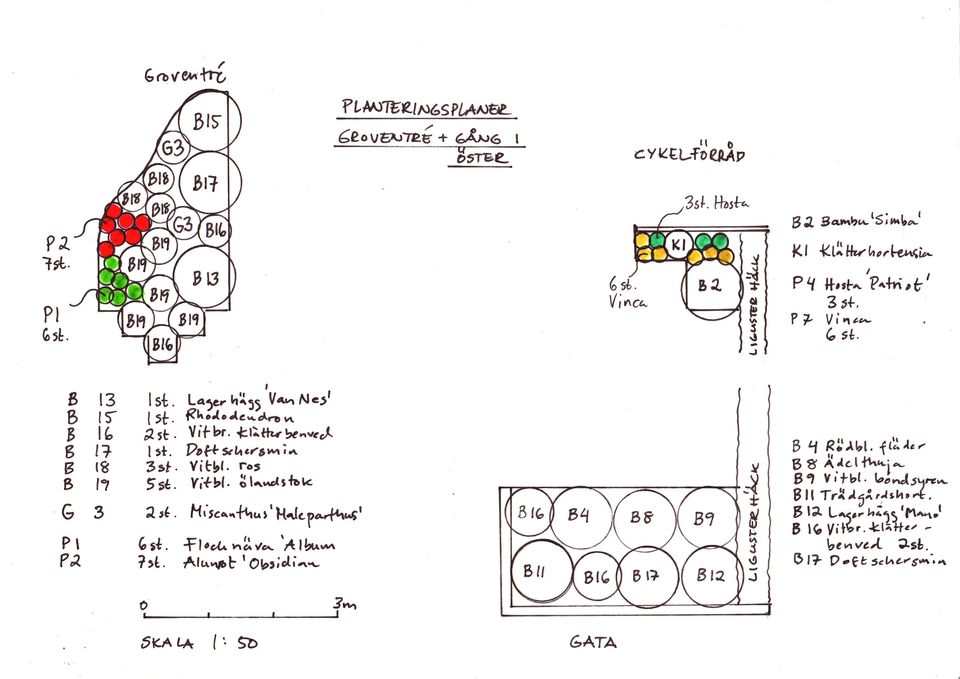 Groventré
PLANTERINGSPLANER
GROVENTRÉ + GÅNG 1
ÖSTER
B15
G3
B18
B17
B18
B18
G3
B16
B19
B19
B13
B19
B19
B19
B16
P2
7st.
P1
6st.
CYKELFÖRRÅD
3st. Hosta
K1
B2
6st.
Vinca
LIGUSTER HÄCK
B2 Bambu 'Simba'
K1 Klätterhortensia
P4 Hosta 'Patriot'
3 st.
P7 Vinca
6 st.
B 13 1st. Lagerhägg 'Van Nes'
B 15 1st. Rhododendron
B 16 2st. Vitbr. klätterbenved
B 17 1st. Doftschersmin
B 18 3st. Vitbl. ros
B 19 5st. Vitbl. ölandstok
G 3 2st. Miscanthus 'Maleparthus'
P1 6st. Flocknäva 'Album'
P2 7st. Alunrot 'Obsidian
0 3m
SKALA 1:50
B16 B4 B8 B9
B11 B16 B17 B12
LIGUSTERHÄCK
GATA
B 4 Rödbl. fläder
B 8 Ädelthuja
B9 Vitbl. bondsyren
B11 Trädgårdshort.
B12 Lagerhägg 'Mano'
B 16 Vitbr. klätter-
benved 2st.
B17 Doftschersmin